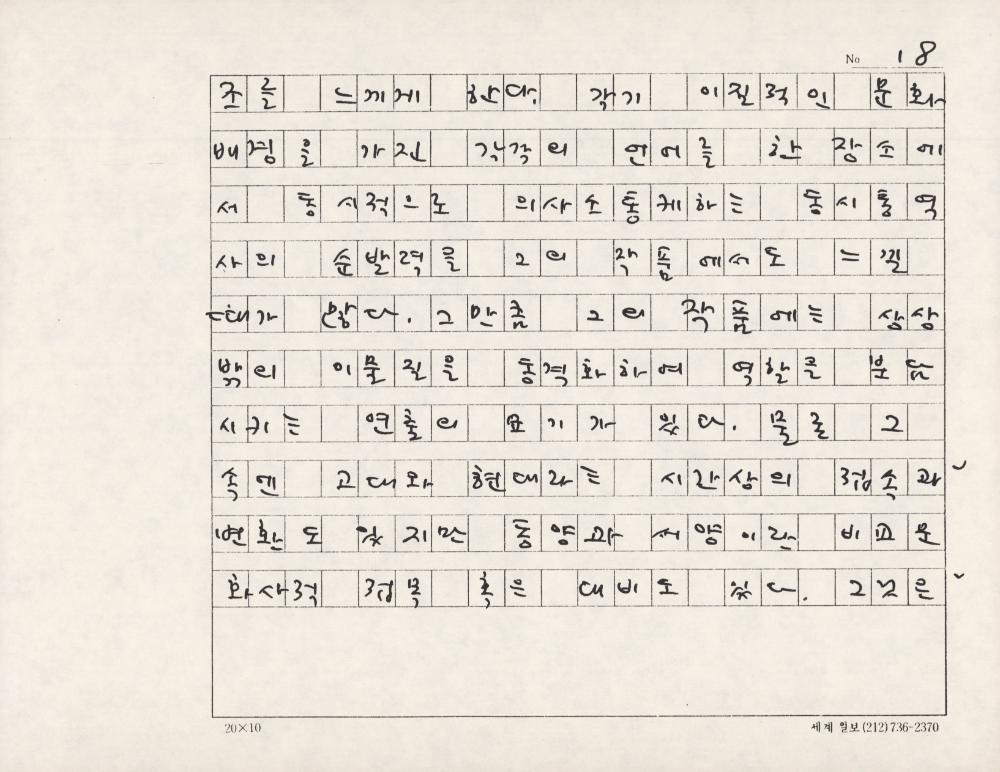 No 18
조를 느끼게 한다. 각기 이질적인 문화
배경을 가진 각각의 언어를 한 장소에
서 동시적으로 의사소통케하는 동시통역
사의 순발력을 그의 작품에서도 느낄
때가 많다. 그만큼 그의 작품에는 상상
밖의 이물질을 동격화하여 역할을 분담
시키는 연출의 묘기가 있다. 물론 그
속엔 고대와 현대라는 시간상의 접속과
변환도 있지만 동양과 서양이란 비교문
화사적 접목 혹은 대비도 있다. 그것은
20×10
세계 월보 (212) 736-2370